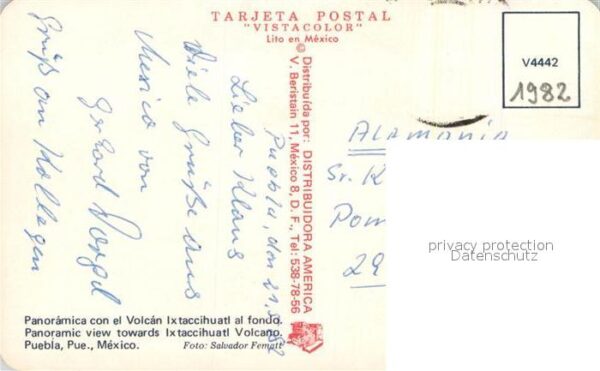 TARJETA POSTAL
"VISTACOLOR"
Lito en México
©
Distribuída por: DISTRIBUIDORA AMERICA
V. Beristain 11, México 8, D. F., Tel: 538-78-56
V4442
1982
Puebla, den 21.9.82
Lieber Klaus
Viele Grüße aus
Mexico von
Gerhard Vogel
Gruß an Kollegen
ALEMANIA
Sr. K
Pom
29
privacy protection
Datenschutz
Panorámica con el Volcán Ixtaccihuatl al fondo.
Panoramic view towards Ixtaccihuatl Volcano.
Puebla, Pue., México.
Foto: Salvador Fematt